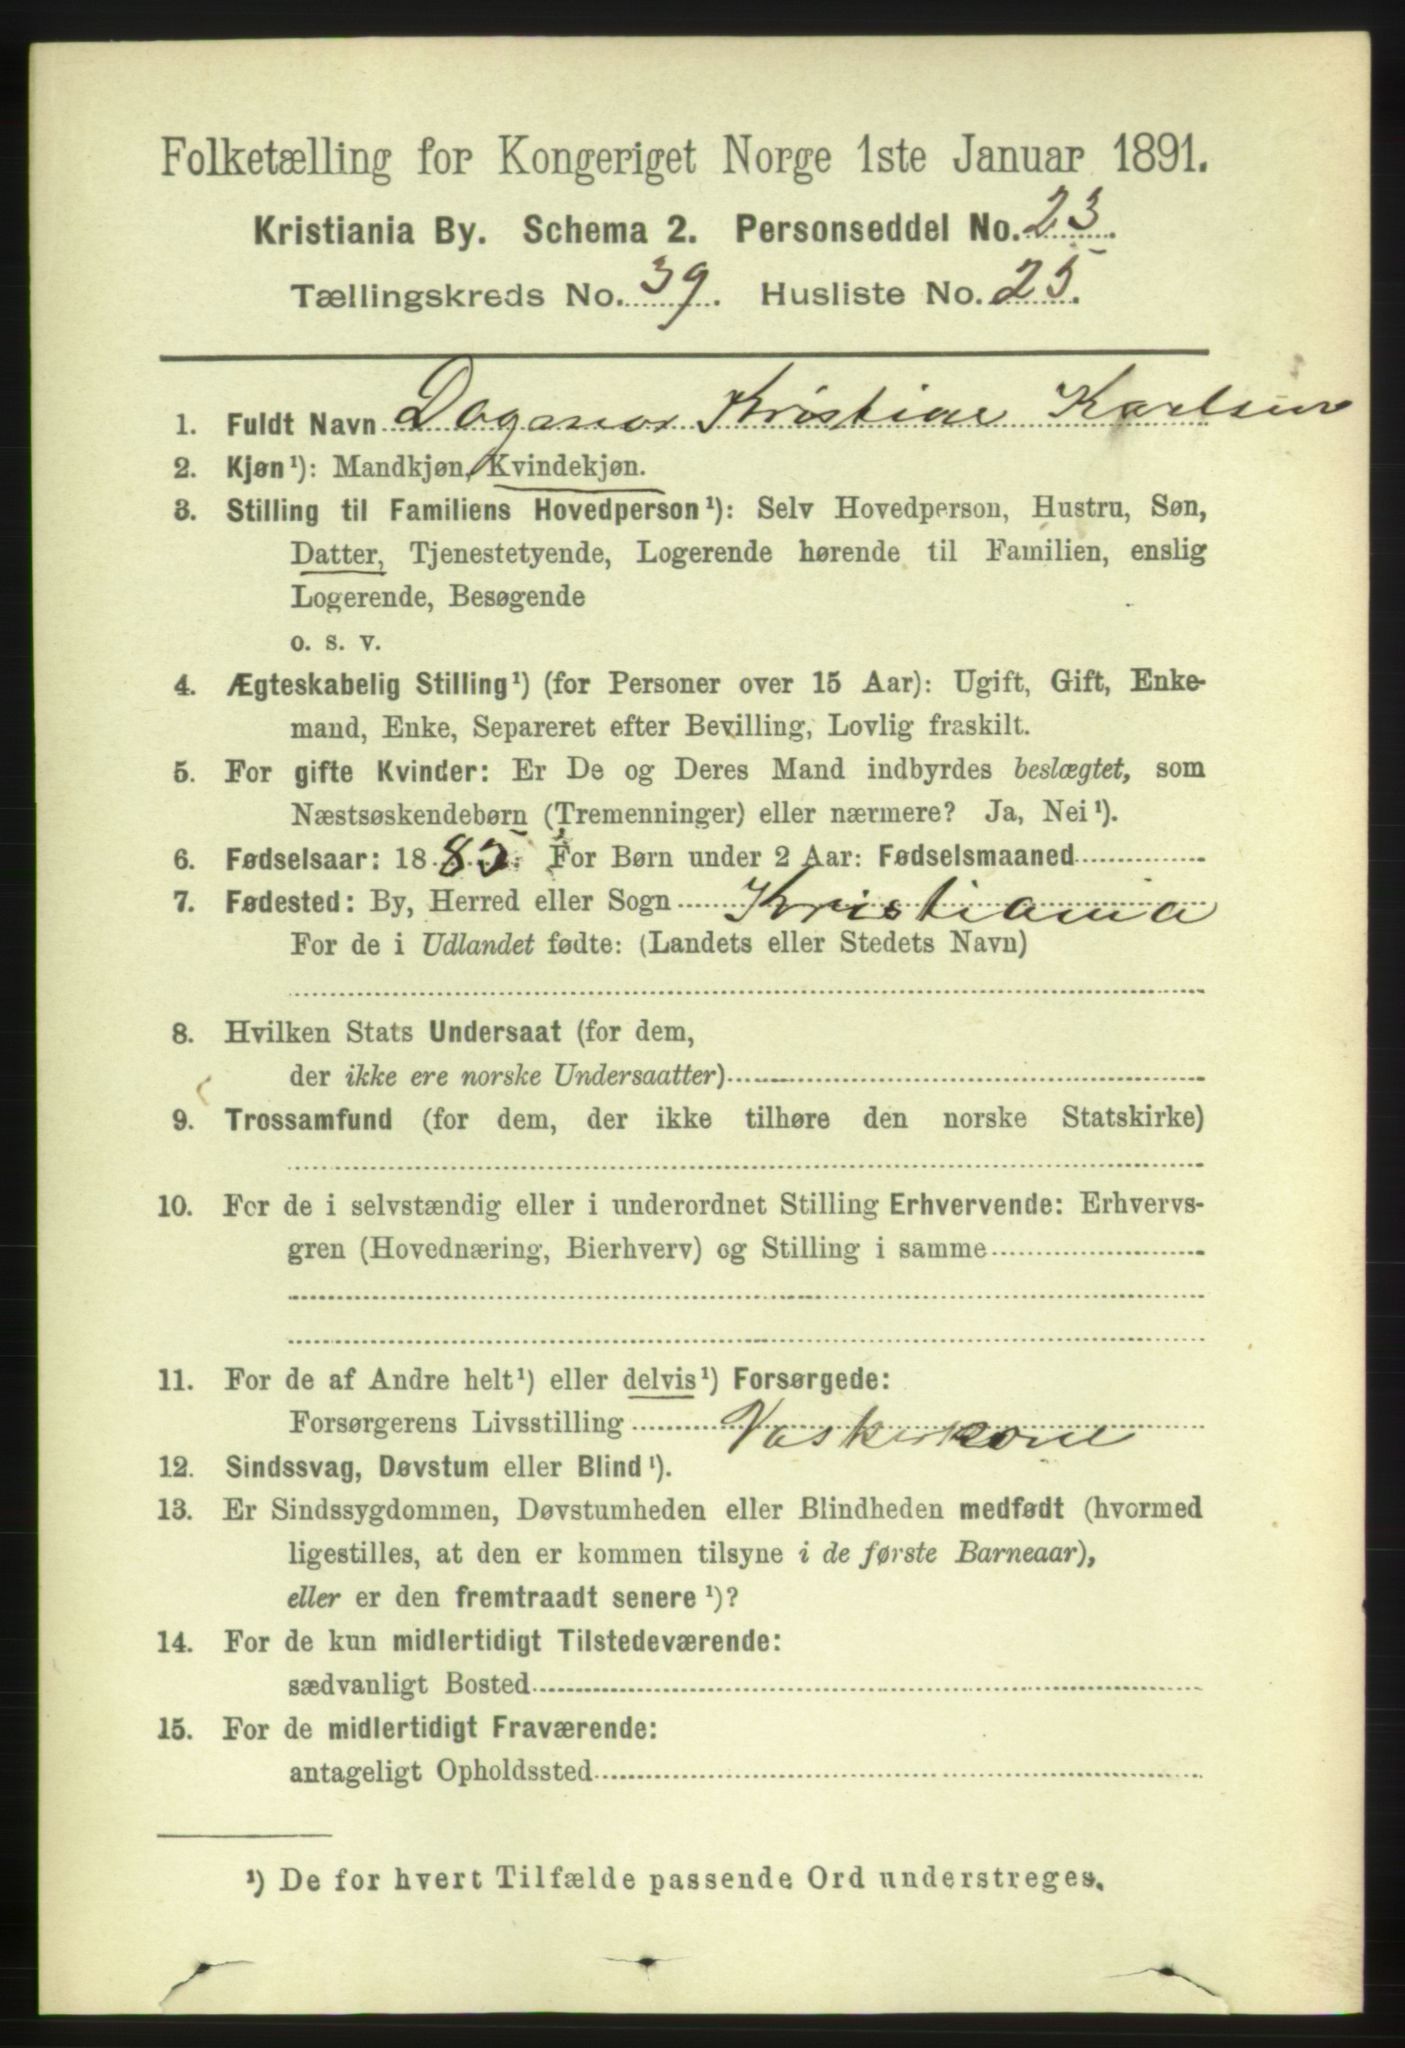 Folketælling for Kongeriget Norge 1ste Januar 1891.
Kristiania By. Schema 2. Personseddel No. 23.
Tællingskreds No. 39. Husliste No. 25.
1. Fuldt Navn Dagmar Kristine Karlsen
2. Kjøn¹): Mandkjøn, Kvindekjøn.
3. Stilling til Familiens Hovedperson¹): Selv Hovedperson, Hustru, Søn,
Datter, Tjenestetyende, Logerende hørende til Familien, enslig
Logerende, Besøgende
o. s. v.
4. Ægteskabelig Stilling¹) (for Personer over 15 Aar): Ugift, Gift, Enke-
mand, Enke, Separeret efter Bevilling, Lovlig fraskilt.
5. For gifte Kvinder: Er De og Deres Mand indbyrdes beslægtet, som
Næstsøskendebørn (Tremenninger) eller nærmere? Ja, Nei¹).
6. Fødselsaar: 1885. For Børn under 2 Aar: Fødselsmaaned
7. Fødested: By, Herred eller Sogn Kristiania
For de i Udlandet fødte: (Landets eller Stedets Navn)
8. Hvilken Stats Undersaat (for dem,
der ikke ere norske Undersaatter)
9. Trossamfund (for dem, der ikke tilhøre den norske Statskirke)
10. For de i selvstændig eller i underordnet Stilling Erhvervende: Erhvervs-
gren (Hovednæring, Bierhverv) og Stilling i samme
11. For de af Andre helt¹) eller delvis¹) Forsørgede:
Forsørgerens Livsstilling Vaskerkone
12. Sindssvag, Døvstum eller Blind¹).
13. Er Sindssygdommen, Døvstumheden eller Blindheden medfødt (hvormed
ligestilles, at den er kommen tilsyne i de første Barneaar),
eller er den fremtraadt senere¹)?
14. For de kun midlertidigt Tilstedeværende:
sædvanligt Bosted
15. For de midlertidigt Fraværende:
antageligt Opholdssted
¹) De for hvert Tilfælde passende Ord understreges.